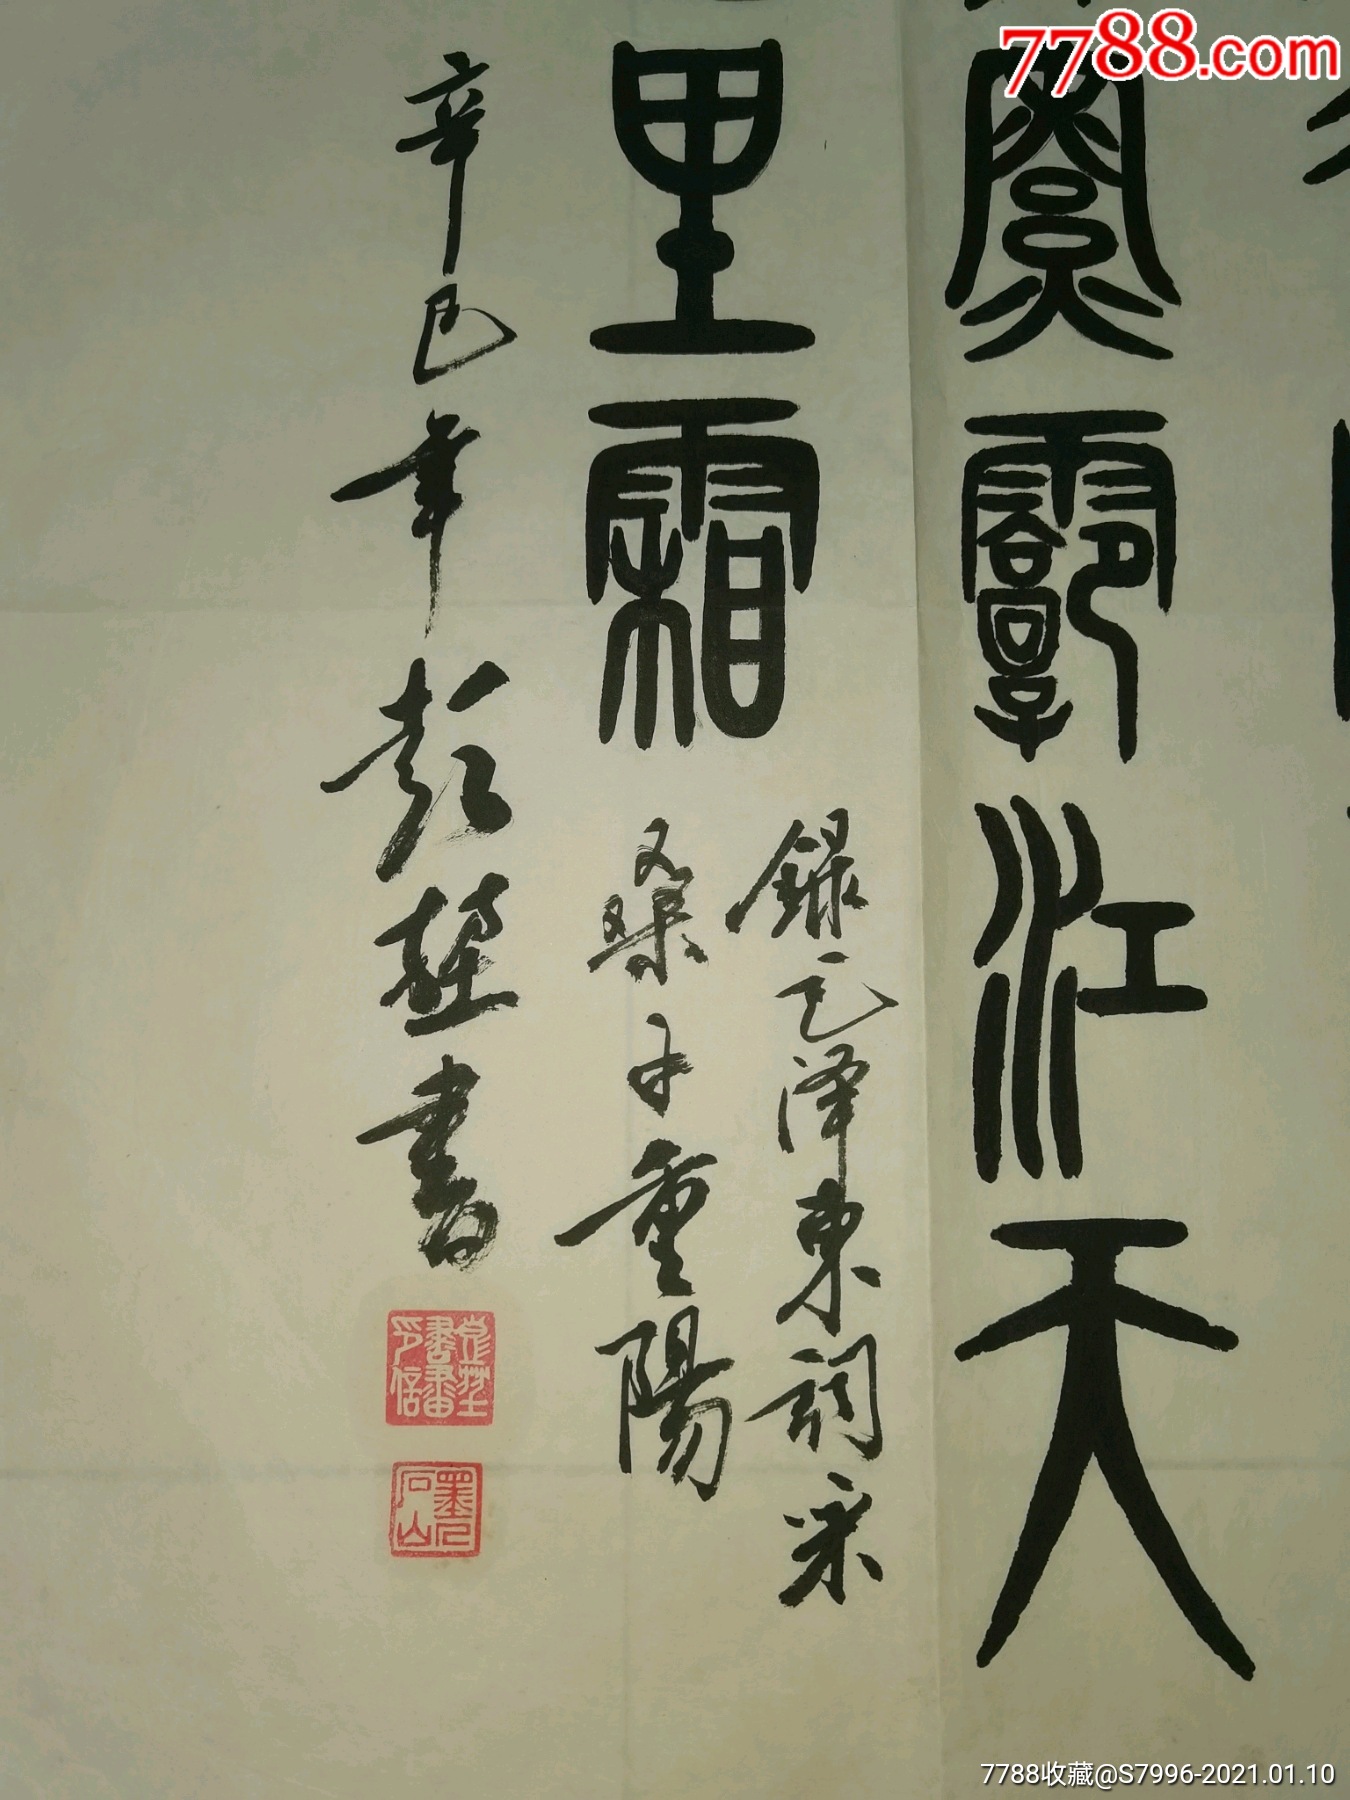 7788.com
寥廓江天
里霜
錄毛澤東詞采
桑子重陽
辛巳年彭
書
7788收藏@S7996-2021.01.10